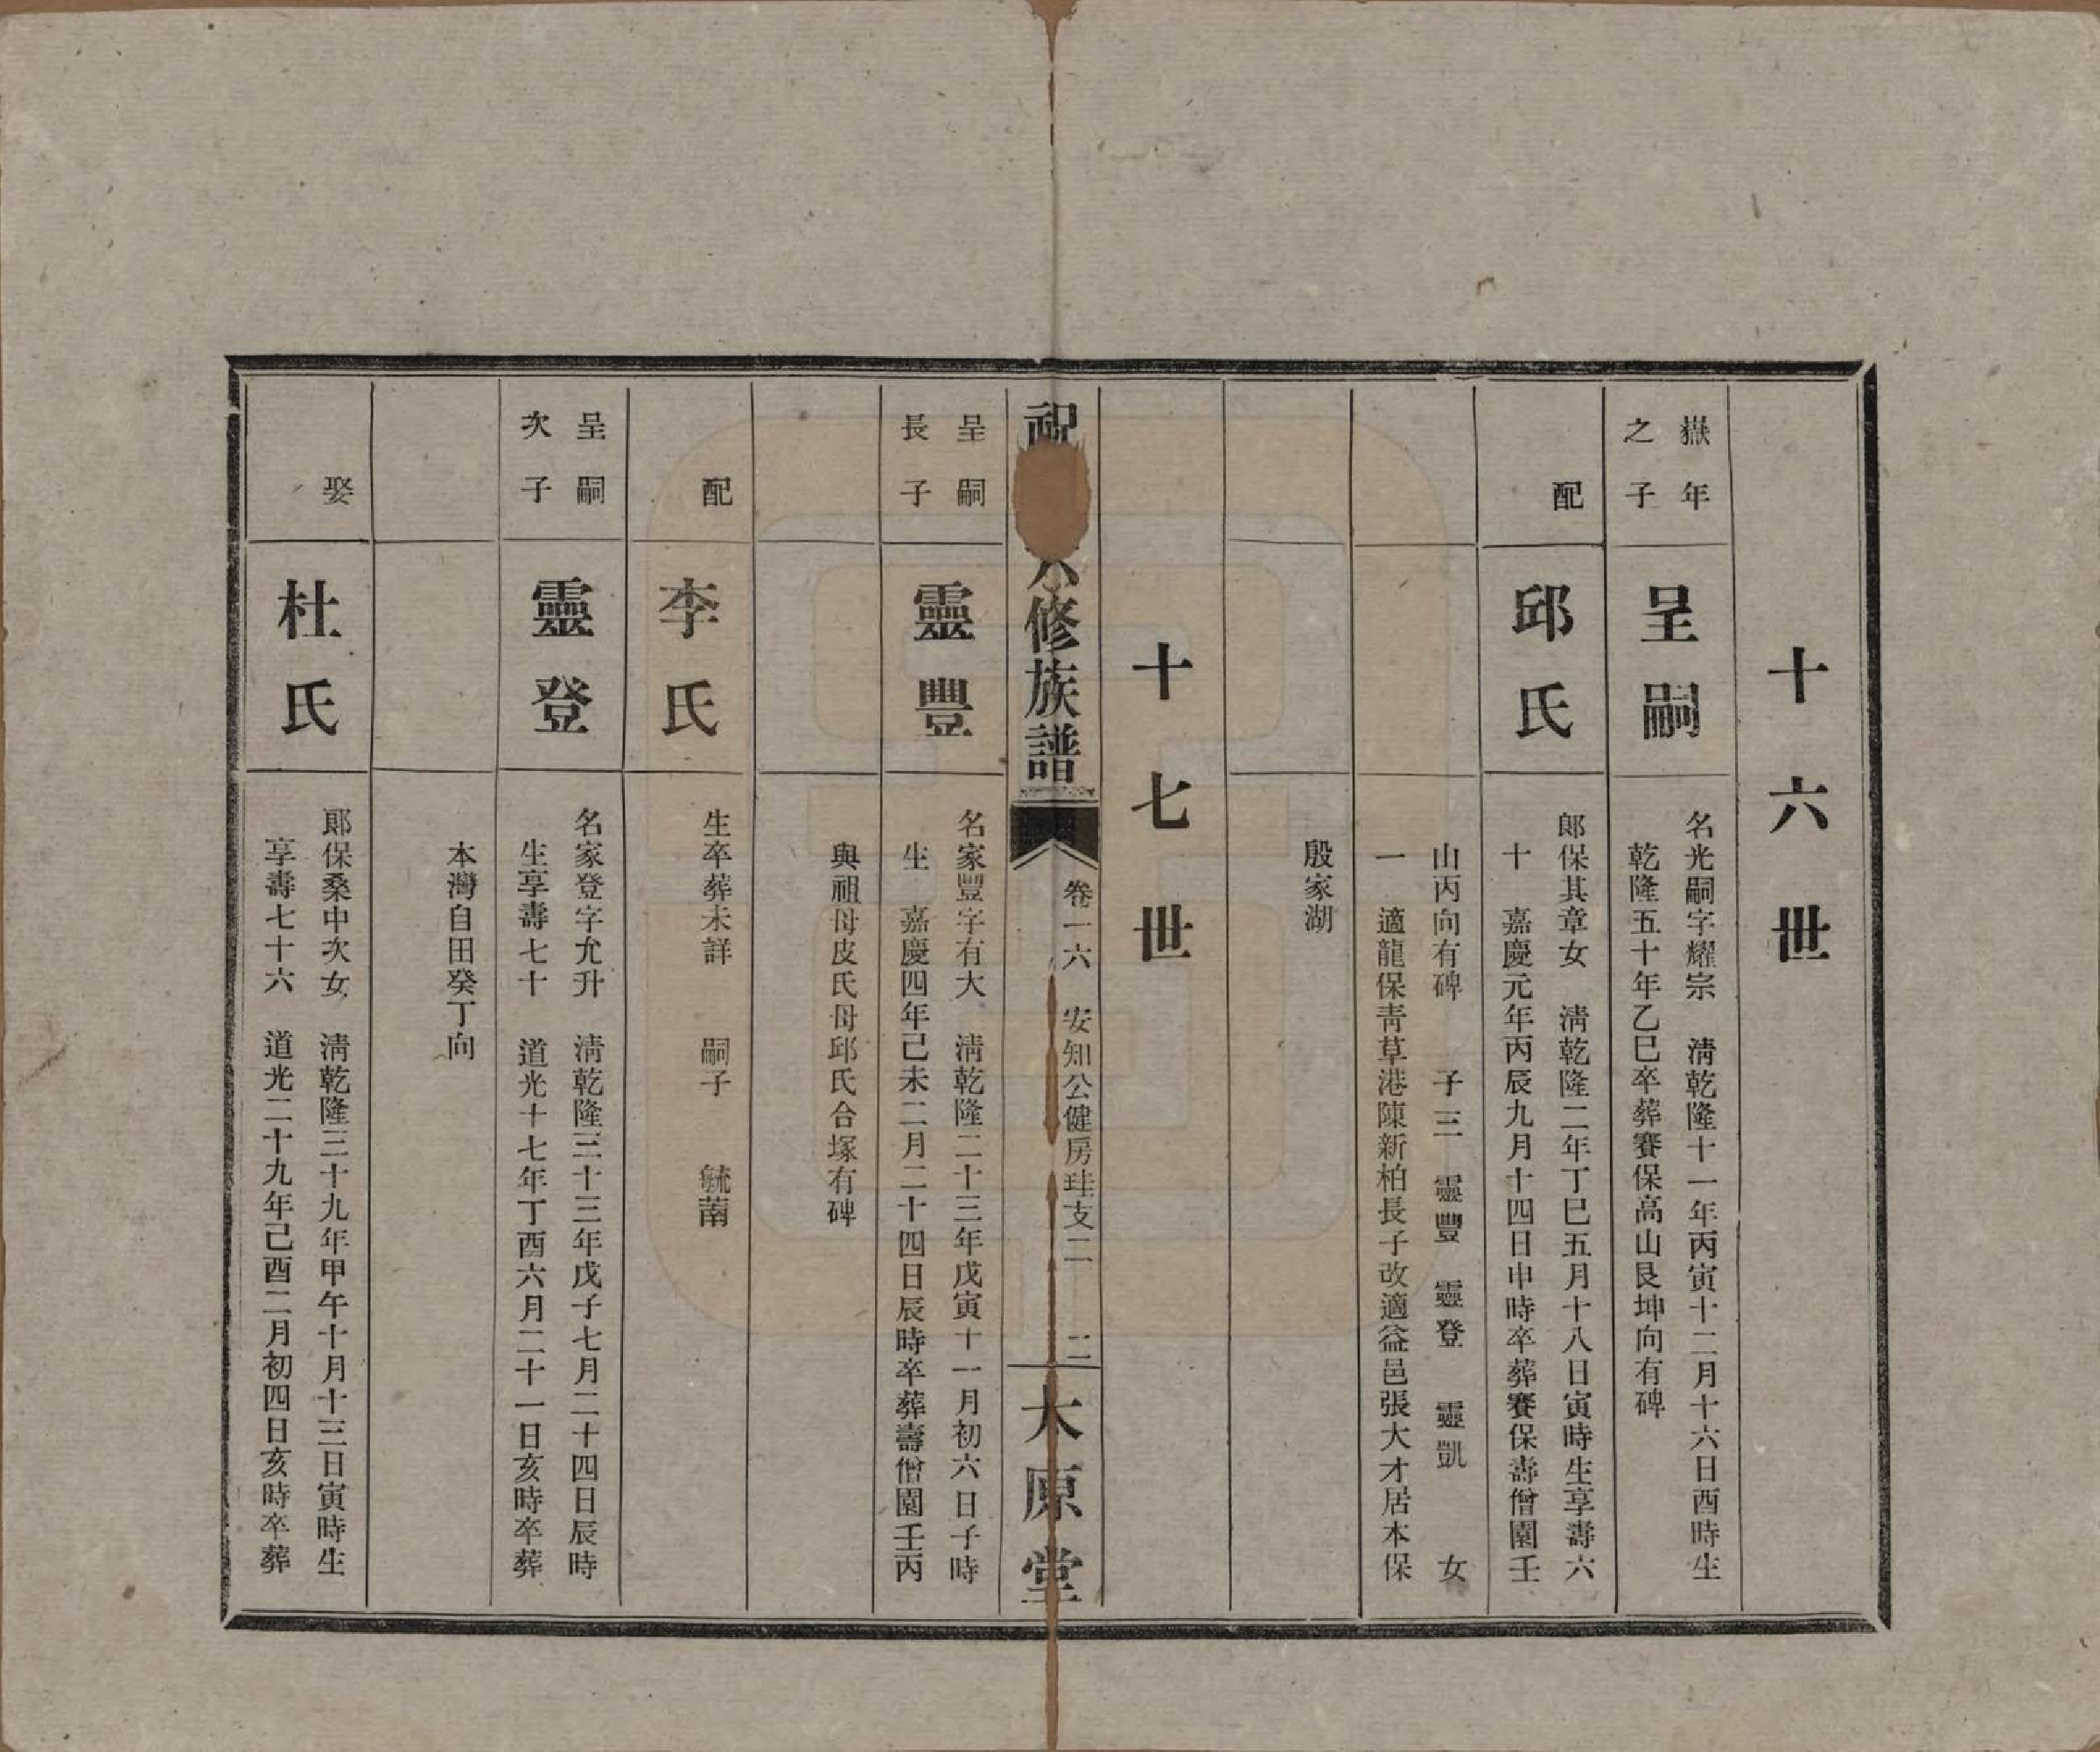 十六世
嶽年
之子
呈嗣
名光嗣字耀宗　淸乾隆十一年丙寅十二月十六日酉時生
乾隆五十年乙巳卒葬賽保高山艮坤向有碑
配
邱氏
郞保其章女　淸乾隆二年丁巳五月十八日寅時生享壽六
十　嘉慶元年丙辰九月十四日申時卒葬賽保壽僧園壬
山丙向有碑　子三　靈豐　靈登　靈凱　女
一　適龍保靑草港陳新柏長子改適益邑張大才居本保
殷家湖
十七世
祝
六修族譜
卷一六　安知公健房珪支二　二
太原堂
呈嗣
長子
靈豐
名家豐字有大　淸乾隆二十三年戊寅十一月初六日子時
生　嘉慶四年己未二月二十四日辰時卒葬壽僧園壬丙
與祖母皮氏母邱氏合塚有碑
配
李氏
生卒葬未詳　嗣子　毓蘭
呈嗣
次子
靈登
名家登字允升　淸乾隆三十三年戊子七月二十四日辰時
生享壽七十　道光十七年丁酉六月二十一日亥時卒葬
本灣自田癸丁向
娶
杜氏
郞保桑中次女　淸乾隆三十九年甲午十月十三日寅時生
享壽七十六　道光二十九年己酉二月初四日亥時卒葬